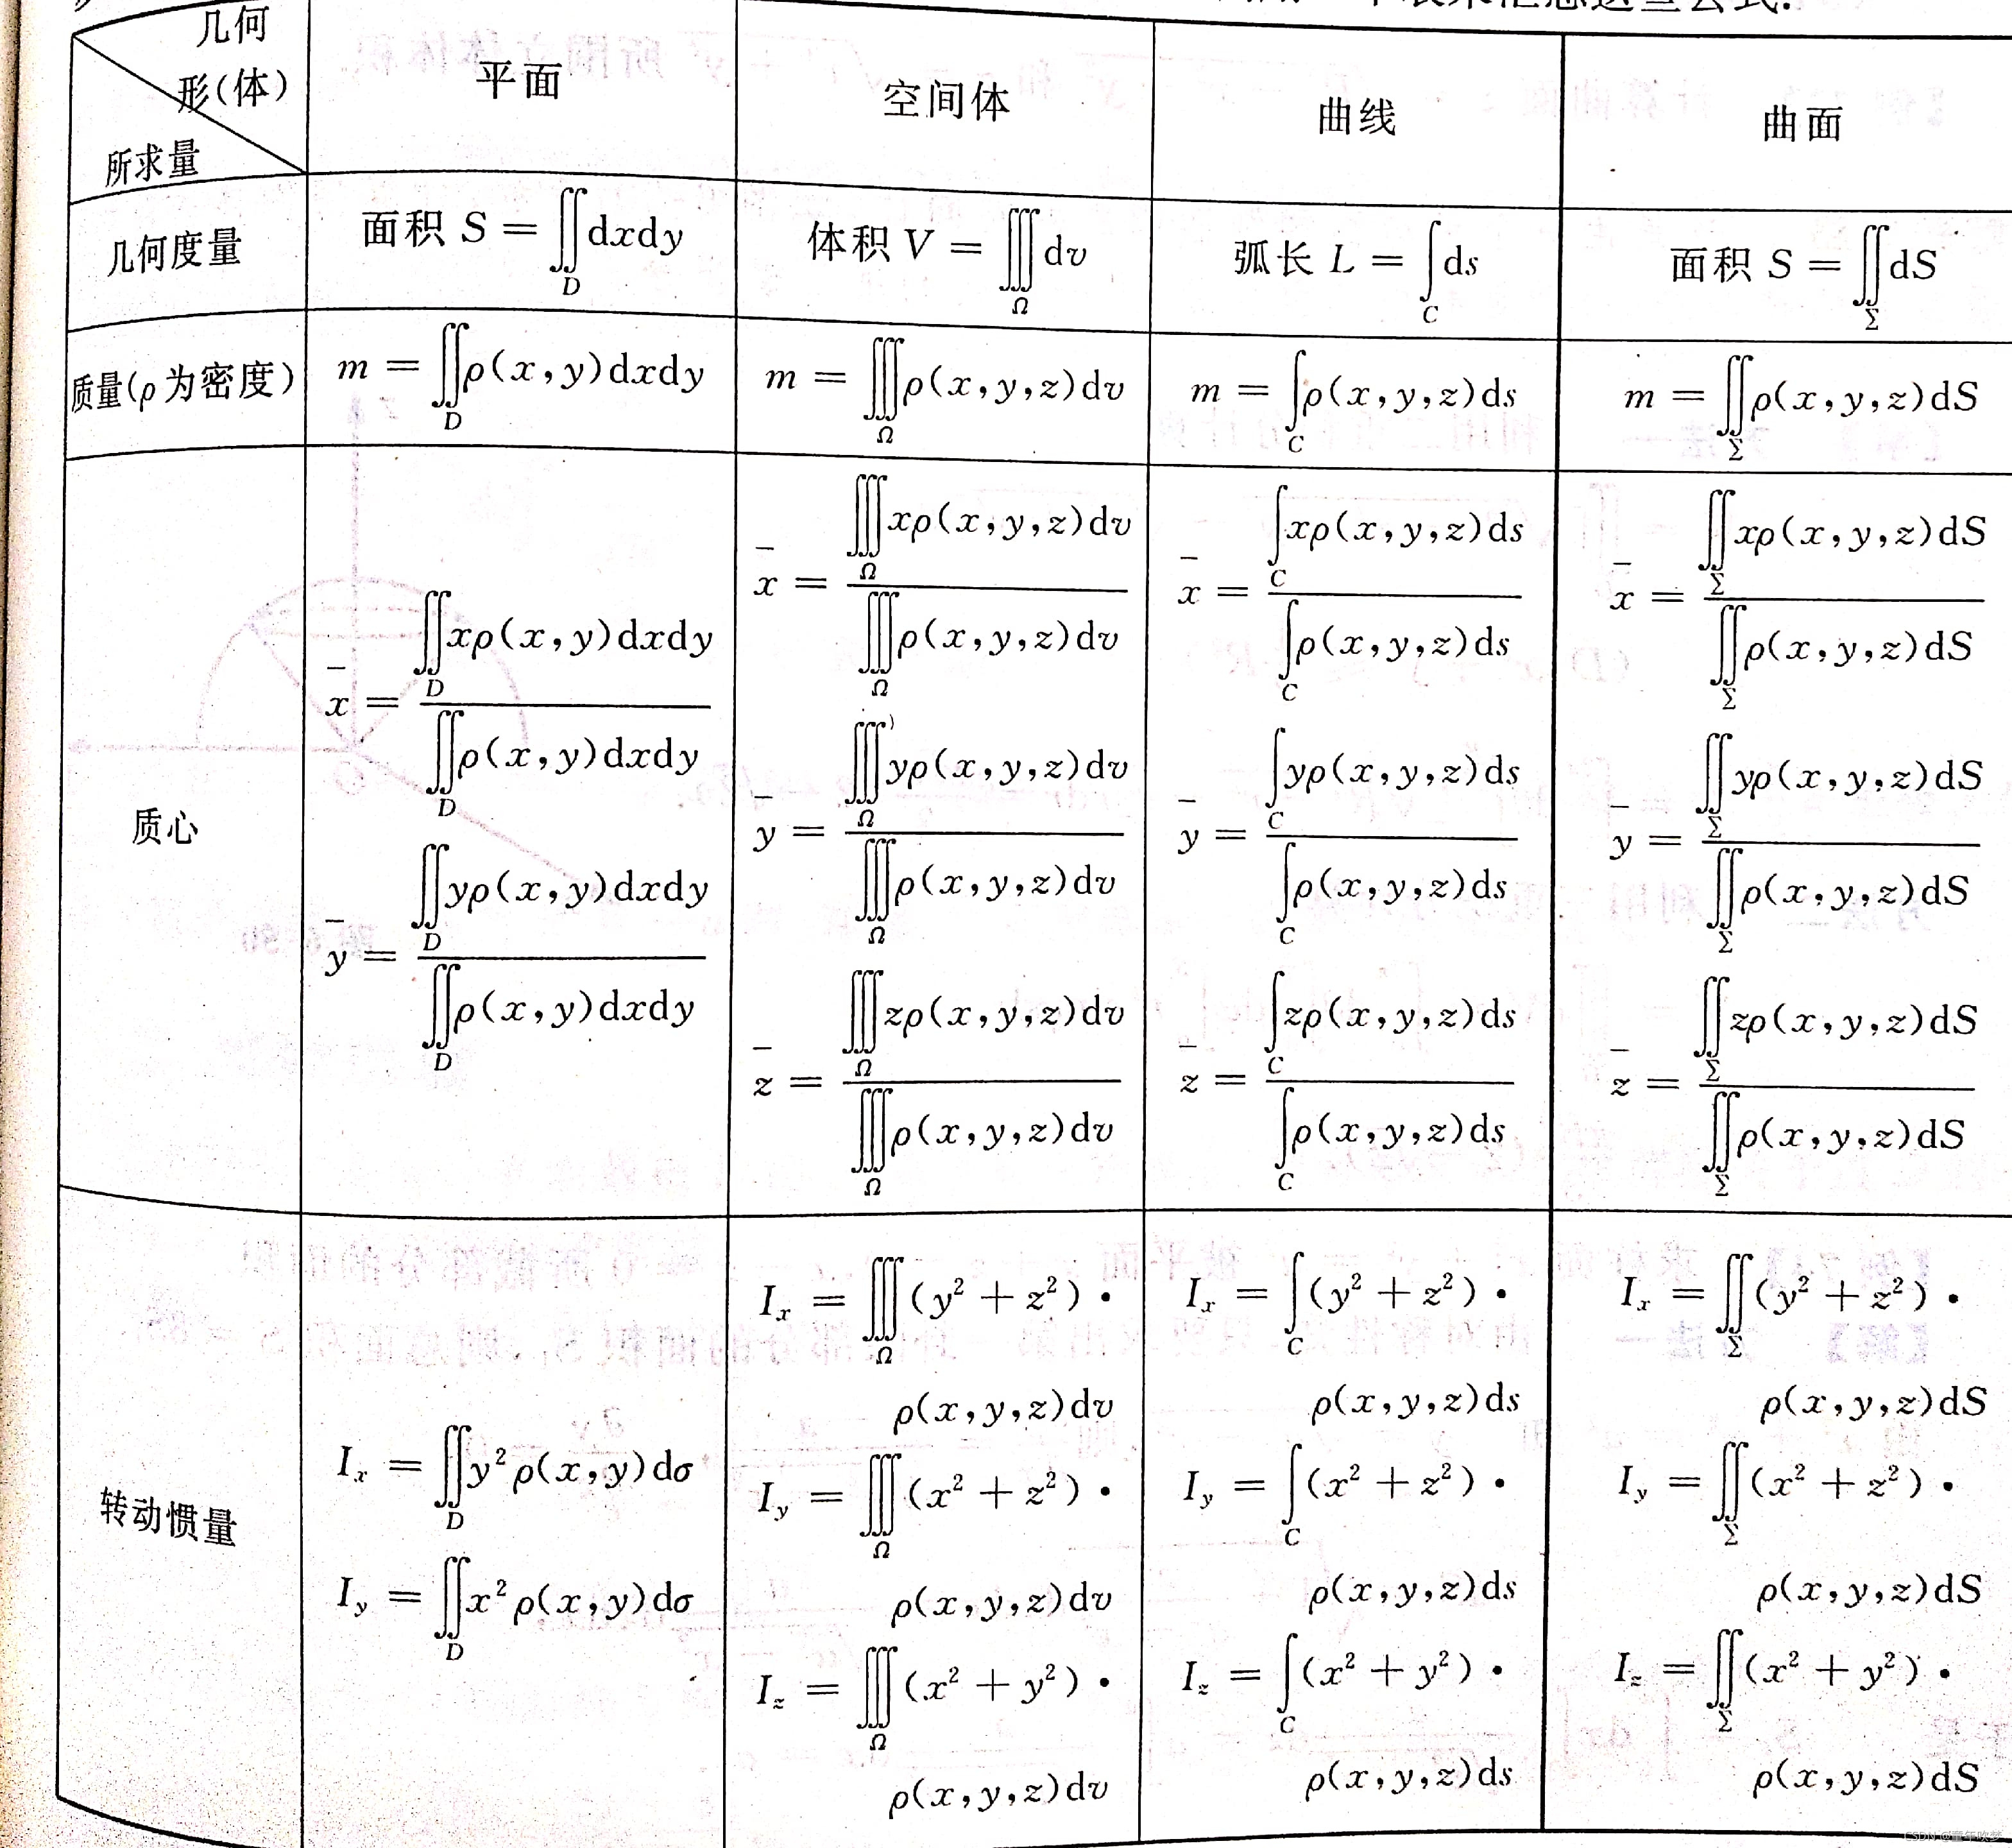 几何
形(体)
所求量
平面
空间体
曲线
曲面
几何度量
面积 S = ∬_D dxdy
体积 V = ∭_Ω dv
弧长 L = ∫_C ds
面积 S = ∬_Σ dS
质量(ρ为密度)
m = ∬_D ρ(x,y)dxdy
m = ∭_Ω ρ(x,y,z)dv
m = ∫_C ρ(x,y,z)ds
m = ∬_Σ ρ(x,y,z)dS
质心
x̄ = ∬_D xρ(x,y)dxdy / ∬_D ρ(x,y)dxdy
ȳ = ∬_D yρ(x,y)dxdy / ∬_D ρ(x,y)dxdy
x̄ = ∭_Ω xρ(x,y,z)dv / ∭_Ω ρ(x,y,z)dv
ȳ = ∭_Ω yρ(x,y,z)dv / ∭_Ω ρ(x,y,z)dv
z̄ = ∭_Ω zρ(x,y,z)dv / ∭_Ω ρ(x,y,z)dv
x̄ = ∫_C xρ(x,y,z)ds / ∫_C ρ(x,y,z)ds
ȳ = ∫_C yρ(x,y,z)ds / ∫_C ρ(x,y,z)ds
z̄ = ∫_C zρ(x,y,z)ds / ∫_C ρ(x,y,z)ds
x̄ = ∬_Σ xρ(x,y,z)dS / ∬_Σ ρ(x,y,z)dS
ȳ = ∬_Σ yρ(x,y,z)dS / ∬_Σ ρ(x,y,z)dS
z̄ = ∬_Σ zρ(x,y,z)dS / ∬_Σ ρ(x,y,z)dS
转动惯量
I_x = ∬_D y² ρ(x,y)dσ
I_y = ∬_D x² ρ(x,y)dσ
I_x = ∭_Ω (y² + z²)·
ρ(x,y,z)dv
I_y = ∭_Ω (x² + z²)·
ρ(x,y,z)dv
I_z = ∭_Ω (x² + y²)·
ρ(x,y,z)dv
I_x = ∫_C (y² + z²)·
ρ(x,y,z)ds
I_y = ∫_C (x² + z²)·
ρ(x,y,z)ds
I_z = ∫_C (x² + y²)·
ρ(x,y,z)ds
I_x = ∬_Σ (y² + z²)·
ρ(x,y,z)dS
I_y = ∬_Σ (x² + z²)·
ρ(x,y,z)dS
I_z = ∬_Σ (x² + y²)·
ρ(x,y,z)dS